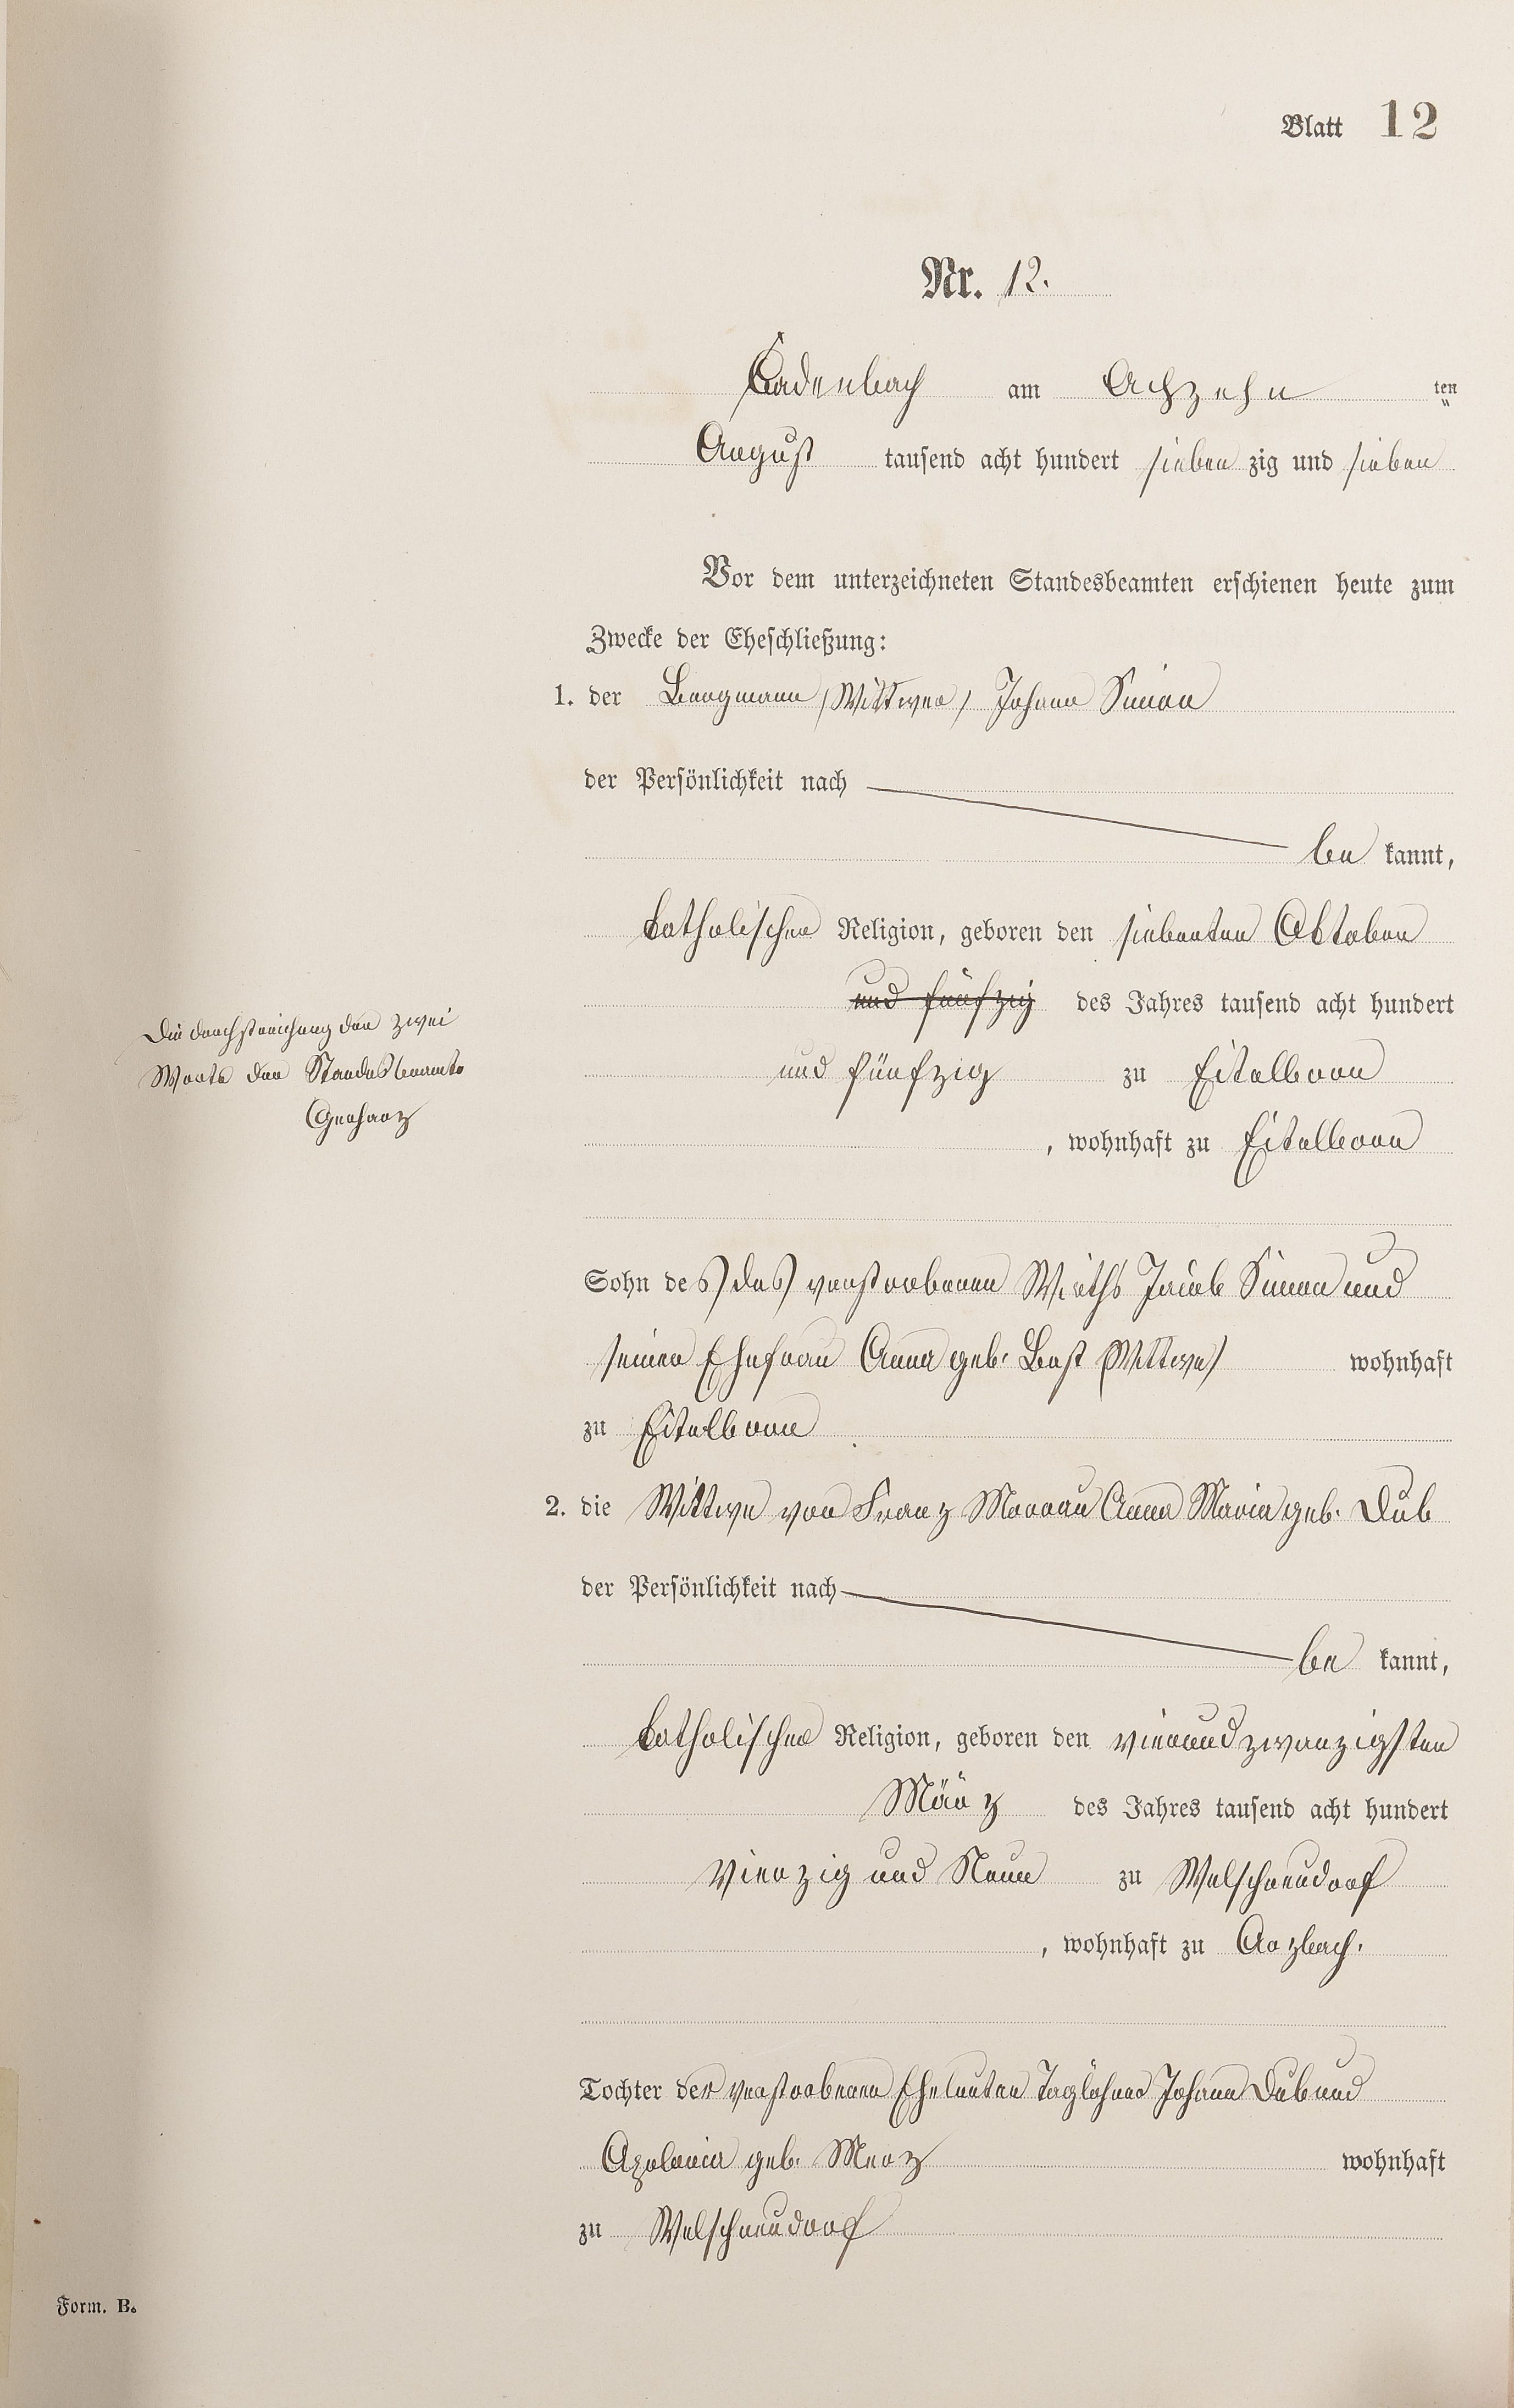 Blatt 12
Nr. 12.
Cadenbach am Achzehn ten
August tausend acht hundert sieben zig und sieben
Vor dem unterzeichneten Standesbeamten erschienen heute zum
Zwecke der Eheschließung:
1. der Bergmann (Wittwer) Johann Simon
der Persönlichkeit nach
be kannt,
katholischer Religion, geboren den siebenten Oktober
und fünfzig des Jahres tausend acht hundert
und fünfzig zu Eitelborn
, wohnhaft zu Eitelborn
Die Durchstreichung der zwei
Worte der Standesbeamte
Gerharz
Sohn des des verstorbenen Wirths Jacob Simon und
seiner Ehefrau Anna geb. Best (Wittwe) wohnhaft
zu Eitelborn
2. die Wittwe von Franz Morrau Anna Maria geb. Dub
der Persönlichkeit nach
be kannt,
katholischer Religion, geboren den vierundzwanzigsten
März des Jahres tausend acht hundert
Vierzig und Neun zu Welschneudorf
, wohnhaft zu Arzbach.
Tochter der verstorbenen Eheleuten Taglöhner Johann Dub und
Apolonia geb. Merz wohnhaft
zu Welschneudorf
Form. B.